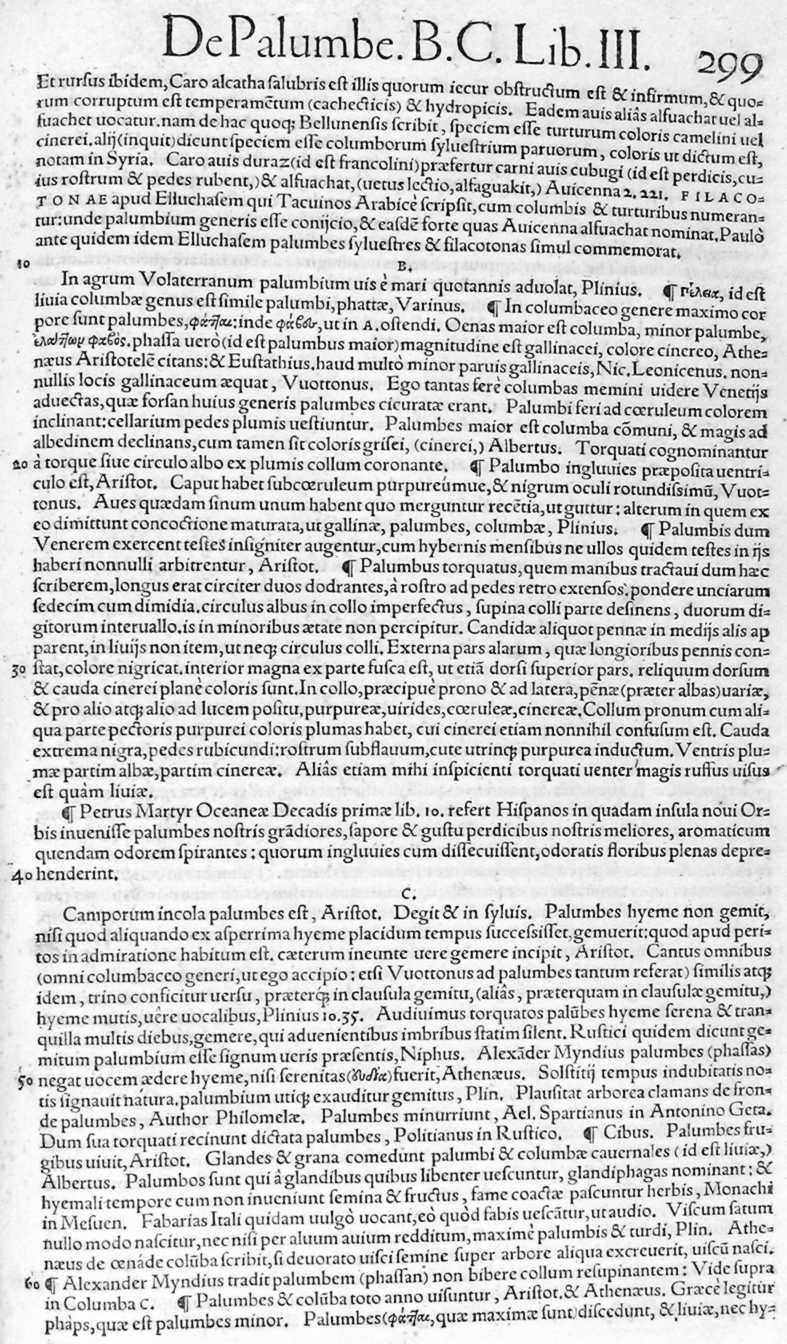 De Palumbe. B. C. Lib. III. 299
Et rursus ibidem, Caro alcatha salubris est illis quorum iecur obstructum est & infirmum, & quo=
rum corruptum est temperamẽtum (cachecticis) & hydropicis. Eadem auis aliâs alfuachat uel al=
fuachet uocatur. nam de hac quoq; Bellunensis scribit, speciem esse turturum coloris camelini uel
cinerei. alij (inquit) dicunt speciem esse columborum syluestrium paruorum, coloris ut dictum est,
notam in Syria. Caro auis duraz (id est francolini) præfertur carni auis cubugi (id est perdicis, cu=
ius rostrum & pedes rubent,) & alfuachat, (uetus lectio, alfaguakit,) Auicenna 2. 221. FILACO=
TONAE apud Elluchasem qui Tacuinos Arabicè scripsit, cum columbis & turturibus numeran=
tur: unde palumbium generis esse conijcio, & easdẽ forte quas Auicenna alfuachat nominat. Paulò
ante quidem idem Elluchasem palumbes syluestres & filacotonas simul commemorat.
10 B.
In agrum Volaterranum palumbium uis è mari quotannis aduolat, Plinius. ¶ Πέλεια, id est
liuia columbæ genus est simile palumbi, phattæ, Varinus. ¶ In columbaceo genere maximo cor
pore sunt palumbes, φάτται: inde φάβον, ut in A. ostendi. Oenas maior est columba, minor palumbe,
ἐλάττων φαβός. phassa uerò (id est palumbus maior) magnitudine est gallinacei, colore cinereo, Athe=
næus Aristotelẽ citans: & Eustathius. haud multò minor paruis gallinaceis, Nic. Leonicenus. non=
nullis locis gallinaceum æquat, Vuottonus. Ego tantas ferè columbas memini uidere Venetijs
aduectas, quæ forsan huius generis palumbes cicuratæ erant. Palumbi feri ad cœruleum colorem
inclinant: cellarium pedes plumis uestiuntur. Palumbes maior est columba cõmuni, & magis ad
albedinem declinans, cum tamen sit coloris grisei, (cinerei,) Albertus. Torquati cognominantur
20 à torque siue circulo albo ex plumis collum coronante. ¶ Palumbo ingluuies præposita uentri=
culo est, Aristot. Caput habet subcœruleum purpureúmue, & nigrum oculi rotundissimũ, Vuot=
tonus. Aues quædam sinum unum habent quo merguntur recẽtia, ut guttur: alterum in quem ex
eo dimittunt concoctione maturata, ut gallinæ, palumbes, columbæ, Plinius. ¶ Palumbis dum
Venerem exercent testes insigniter augentur, cum hybernis mensibus ne ullos quidem testes in ijs
haberi nonnulli arbitrentur, Aristot. ¶ Palumbus torquatus, quem manibus tractaui dum hæc
scriberem, longus erat circiter duos dodrantes, à rostro ad pedes retro extensos: pondere unciarum
sedecim cum dimidia. circulus albus in collo imperfectus, supina colli parte desinens, duorum di=
gitorum interuallo. is in minoribus ætate non percipitur. Candidæ aliquot pennæ in medijs alis ap
parent, in liuijs non item, ut neq; circulus colli. Externa pars alarum, quæ longioribus pennis con=
30 stat, colore nigricat. interior magna ex parte fusca est, ut etiã dorsi superior pars. reliquum dorsum
& cauda cinerei planè coloris sunt. In collo, præcipuè prono & ad latera, pẽnæ (præter albas) uariæ,
& pro alio atq; alio ad lucem positu, purpureæ, uirides, cœruleæ, cinereæ. Collum pronum cum ali=
qua parte pectoris purpurei coloris plumas habet, cui cinerei etiam nonnihil confusum est. Cauda
extrema nigra, pedes rubicundi: rostrum subflauum, cute utrinq; purpurea inductum. Ventris plu=
mæ partim albæ, partim cinereæ. Aliâs etiam mihi inspicienti torquati uenter magis ruffus uisus
est quàm liuiæ.
¶ Petrus Martyr Oceaneæ Decadis primæ lib. 10. refert Hispanos in quadam insula noui Or=
bis inuenisse palumbes nostris grãdiores, sapore & gustu perdicibus nostris meliores, aromaticum
quendam odorem spirantes: quorum ingluuies cum dissecuissent, odoratis floribus plenas depre=
40 henderint.
C.
Camporum incola palumbes est, Aristot. Degit & in syluis. Palumbes hyeme non gemit,
nisi quod aliquando ex asperrima hyeme placidum tempus successisset, gemuerit: quod apud peri=
tos in admiratione habitum est. cæterum ineunte uere gemere incipit, Aristot. Cantus omnibus
(omni columbacco generi, ut ego accipio: etsi Vuottonus ad palumbes tantum referat) similis atq;
idem, trino conficitur uersu, præterq́; in clausula gemitu, (aliâs, præterquam in clausulæ gemitu,)
hyeme mutis, uêre uocalibus, Plinius 10. 35. Audiuimus torquatos palũbes hyeme serena & tran=
quilla multis diebus, gemere, qui aduenientibus imbribus statim silent. Rustici quidem dicunt ge=
mitum palumbium esse signum ueris præsentis, Niphus. Alexãder Myndius palumbes (phassas)
50 negat uocem ædere hyeme, nisi serenitas (εὐδία) fuerit, Athenæus. Solstitij tempus indubitatis no=
tis signauit natura. palumbium utiq; exauditur gemitus, Plin. Plausitat arborea clamans de fron=
de palumbes, Author Philomelæ. Palumbes minurriunt, Ael. Spartianus in Antonino Geta.
Dum sua torquati recinunt dictata palumbes, Politianus in Rustico. ¶ Cibus. Palumbes fru=
gibus uiuit, Aristot. Glandes & grana comedunt palumbi & columbæ cauernales (id est liuiæ,)
Albertus. Palumbos sunt qui à glandibus quibus libenter uescuntur, glandiphagas nominant: &
hyemali tempore cum non inueniunt semina & fructus, fame coactæ pascuntur herbis, Monachi
in Mesuen. Fabarias Itali quidam uulgò uocant, eò quòd fabis uescãtur, ut audio. Viscum satum
nullo modo nascitur, nec nisi per aluum auium redditum, maximè palumbis & turdi, Plin. Athe=
næus de œnáde colũba scribit, si deuorato uisci semine super arbore aliqua excreuerit, uiscũ nasci.
60 ¶ Alexander Myndius tradit palumbem (phassan) non bibere collum resupinantem: Vide supra
in Columba C. ¶ Palumbes & colũba toto anno uisuntur, Aristot. & Athenæus. Græcè legitur
phaps, quæ est palumbes minor. Palumbes (φάτται, quæ maximæ sunt) discedunt, & liuiæ, nec hy=